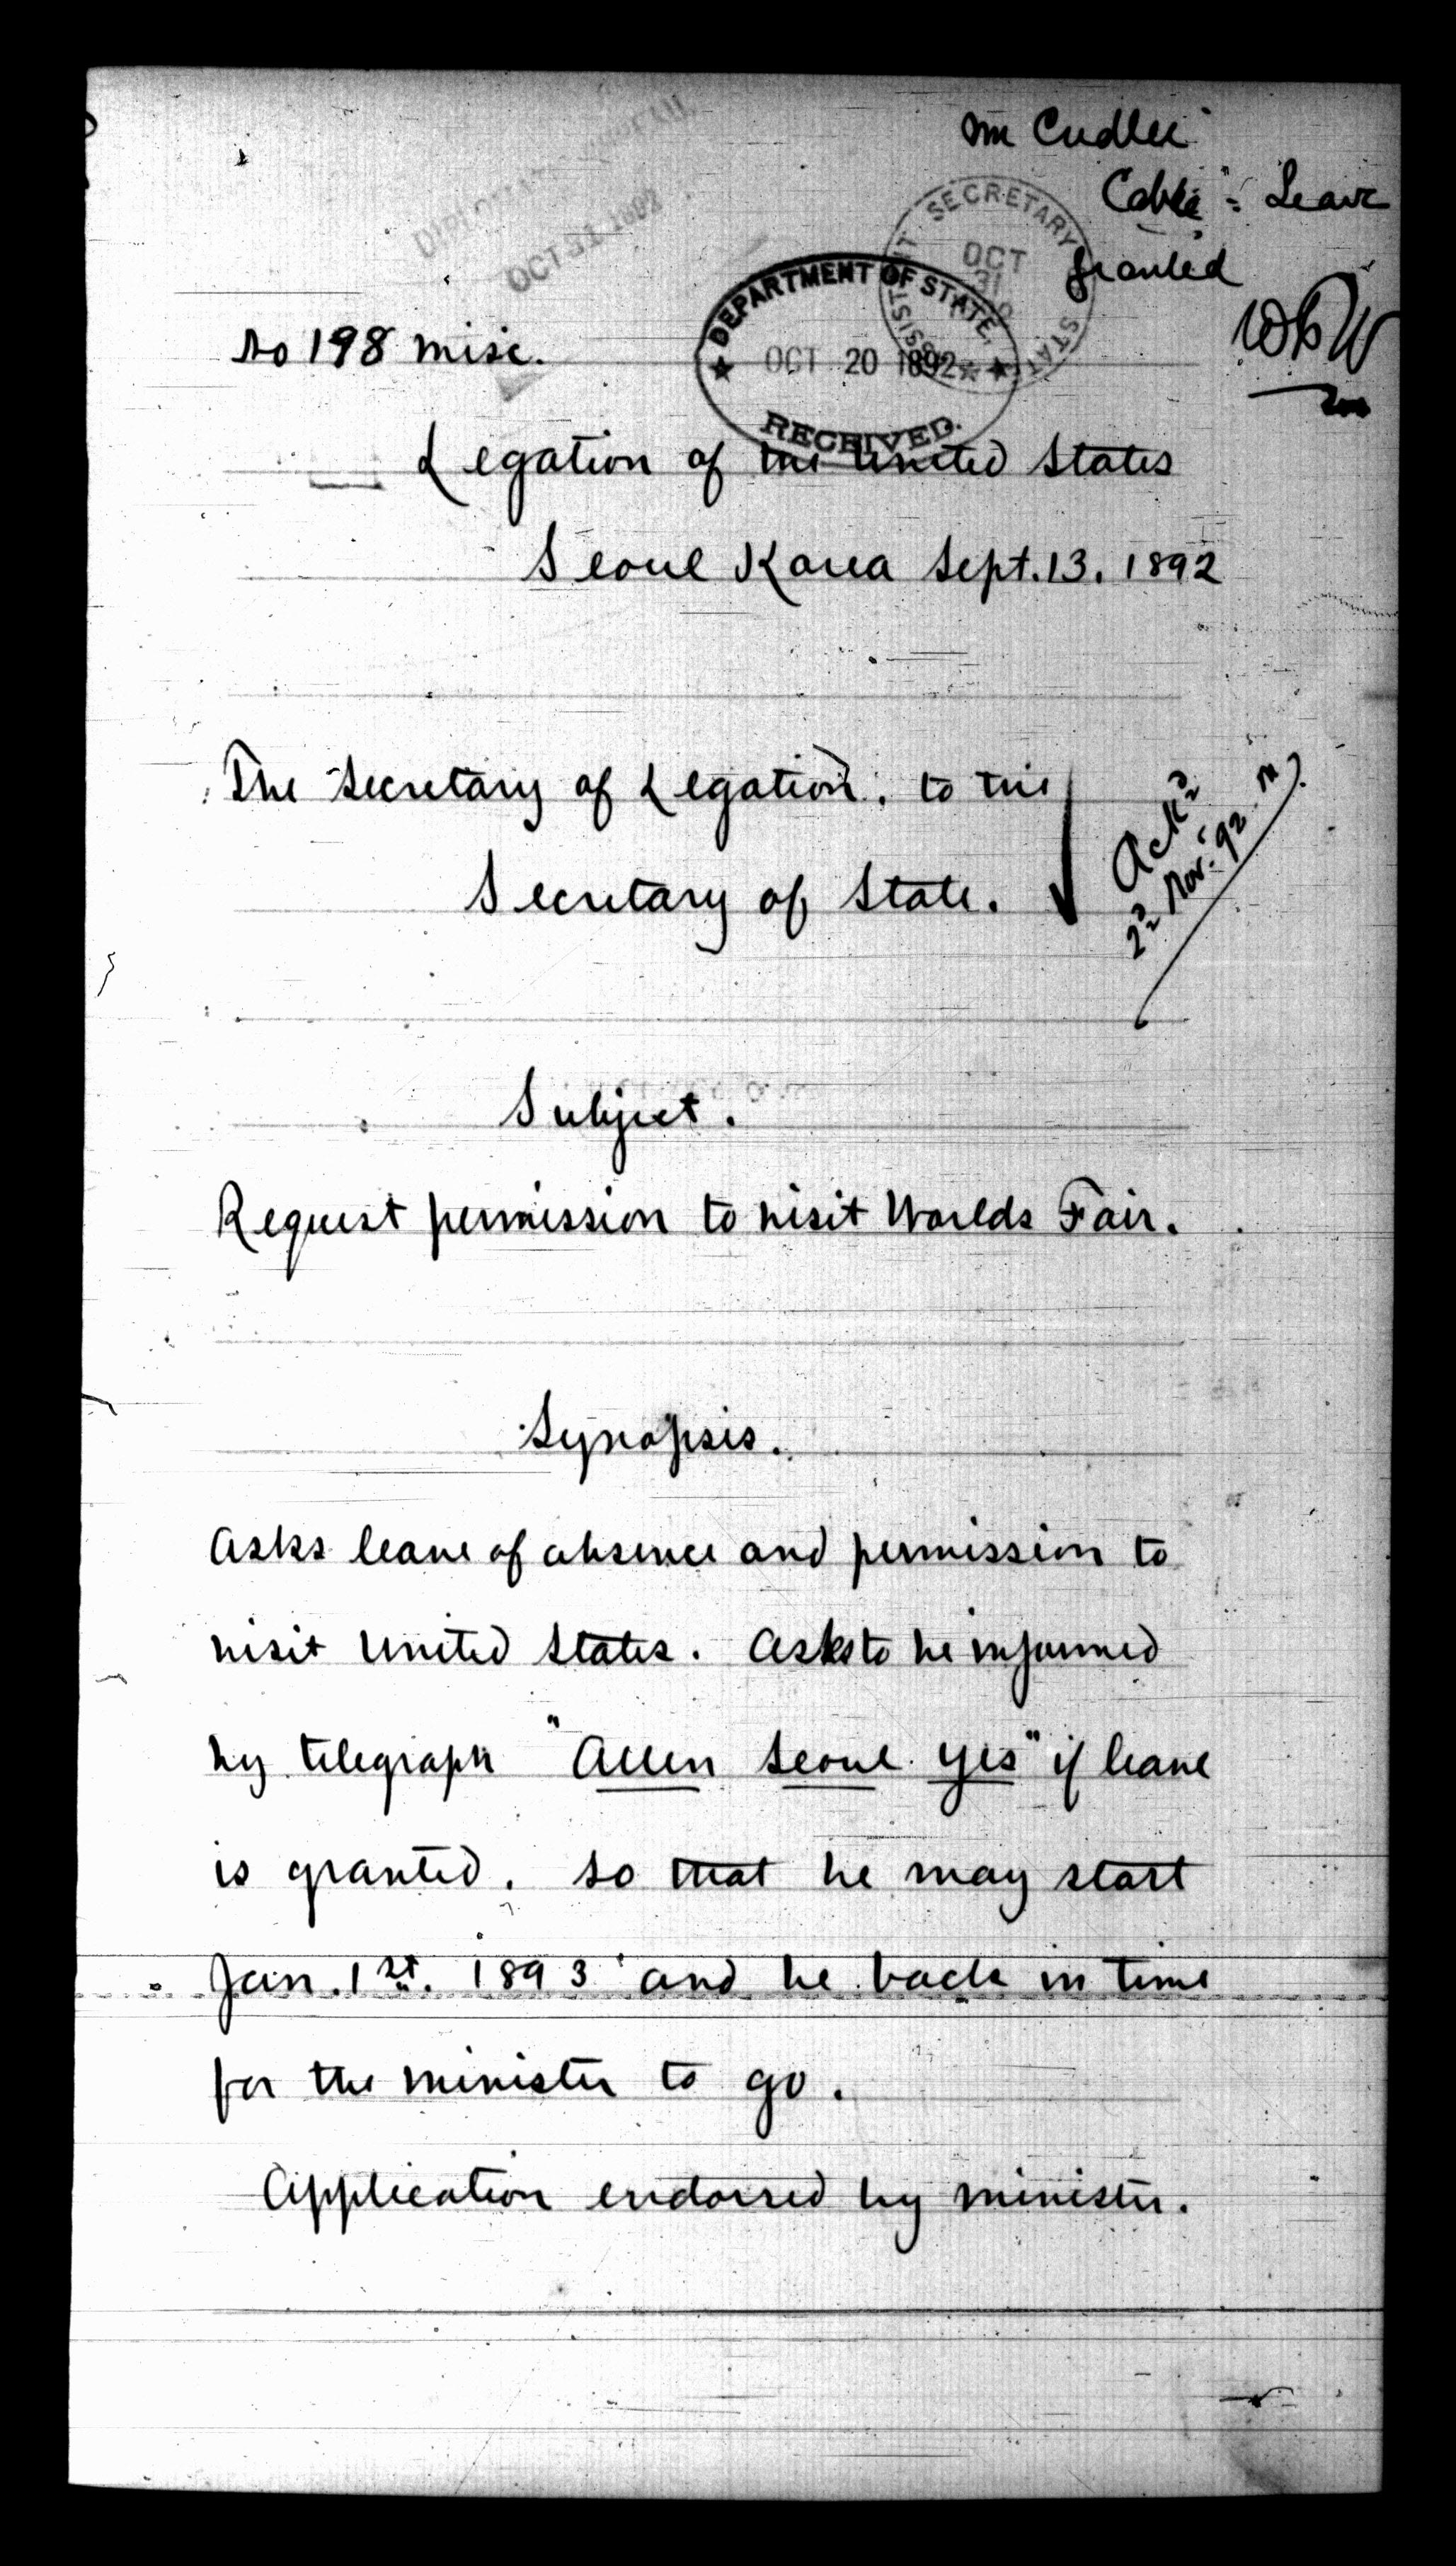 Mr Cridler
Cable "Leave
granted
WFW
DIPLOMATIC BUREAU
OCT 31 1892
SECRETARY
OCT
31
DEPARTMENT OF STATE,
OCT 20 1892
RECEIVED.
No 198 Misc.
Legation of the United States
Seoul Korea Sept. 13. 1892
The Secretary of Legation, to the
Secretary of State.
Ackd
2d Nov. '92
Subject.
Request permission to visit Worlds Fair.
Synopsis.
Asks leave of absence and permission to
visit United States. Asks to be informed
by telegraph "Allen Seoul Yes" if leave
is granted. So that he may start
Jan. 1st. 1893 and be back in time
for the minister to go.
Application endorsed by minister.